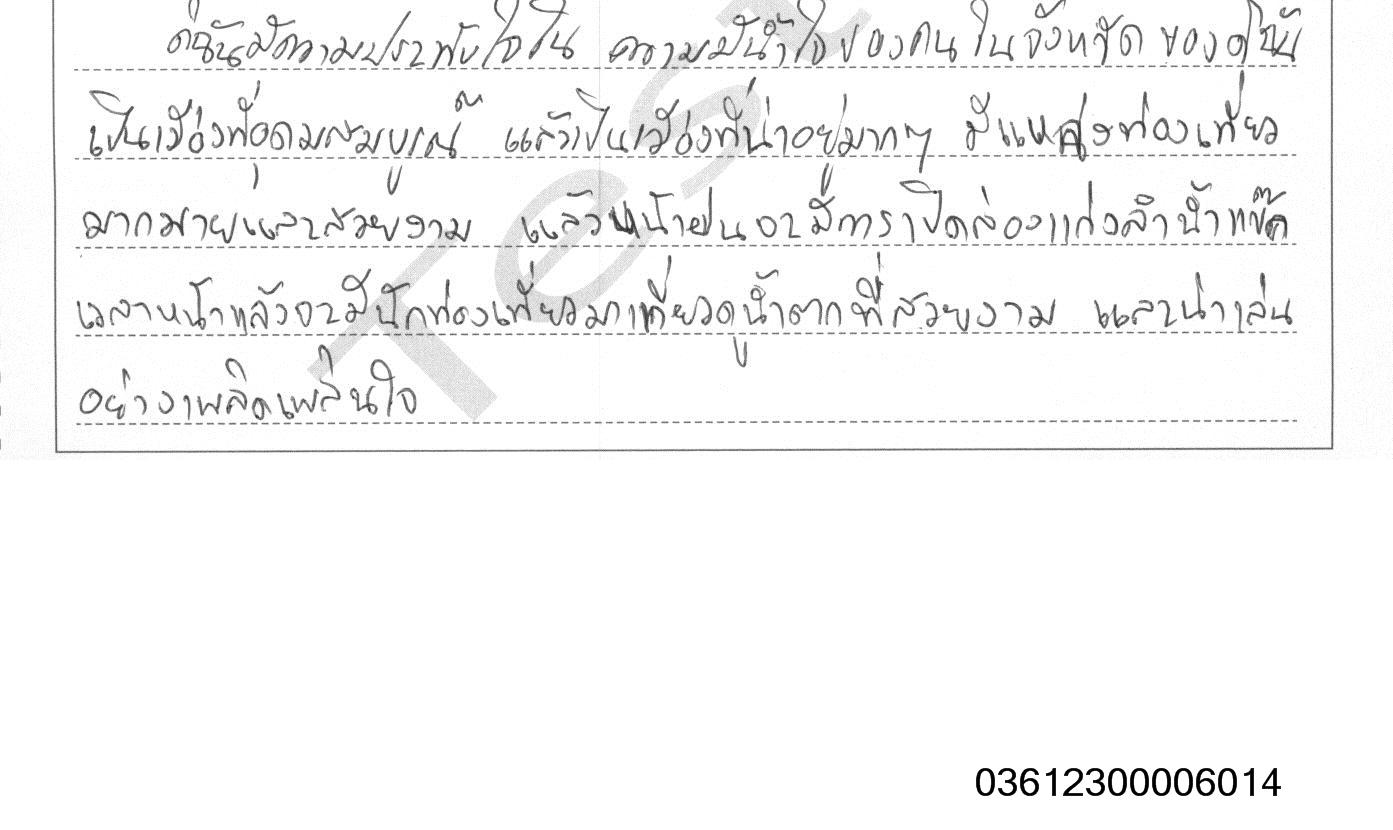 ดิฉันมีความประทับใจใน ความมีน้ำใจของคนในจังหวัดของดิฉัน
เป็นเมืองที่อุดมสมบูรณ์ แล้วเป็นเมืองที่น่าอยู่มากๆ มีแหล่งท่องเที่ยว
มากมายและสวยงาม แล้วหน้าฝนจะมีการเปิดล่องแก่งลำน้ำเข็ก
เวลาหน้าแล้งจะมีนักท่องเที่ยวมาเที่ยวดูน้ำตกที่สวยงาม และน่าเล่น
อย่างเพลิดเพลินใจ
Test
03612300006014